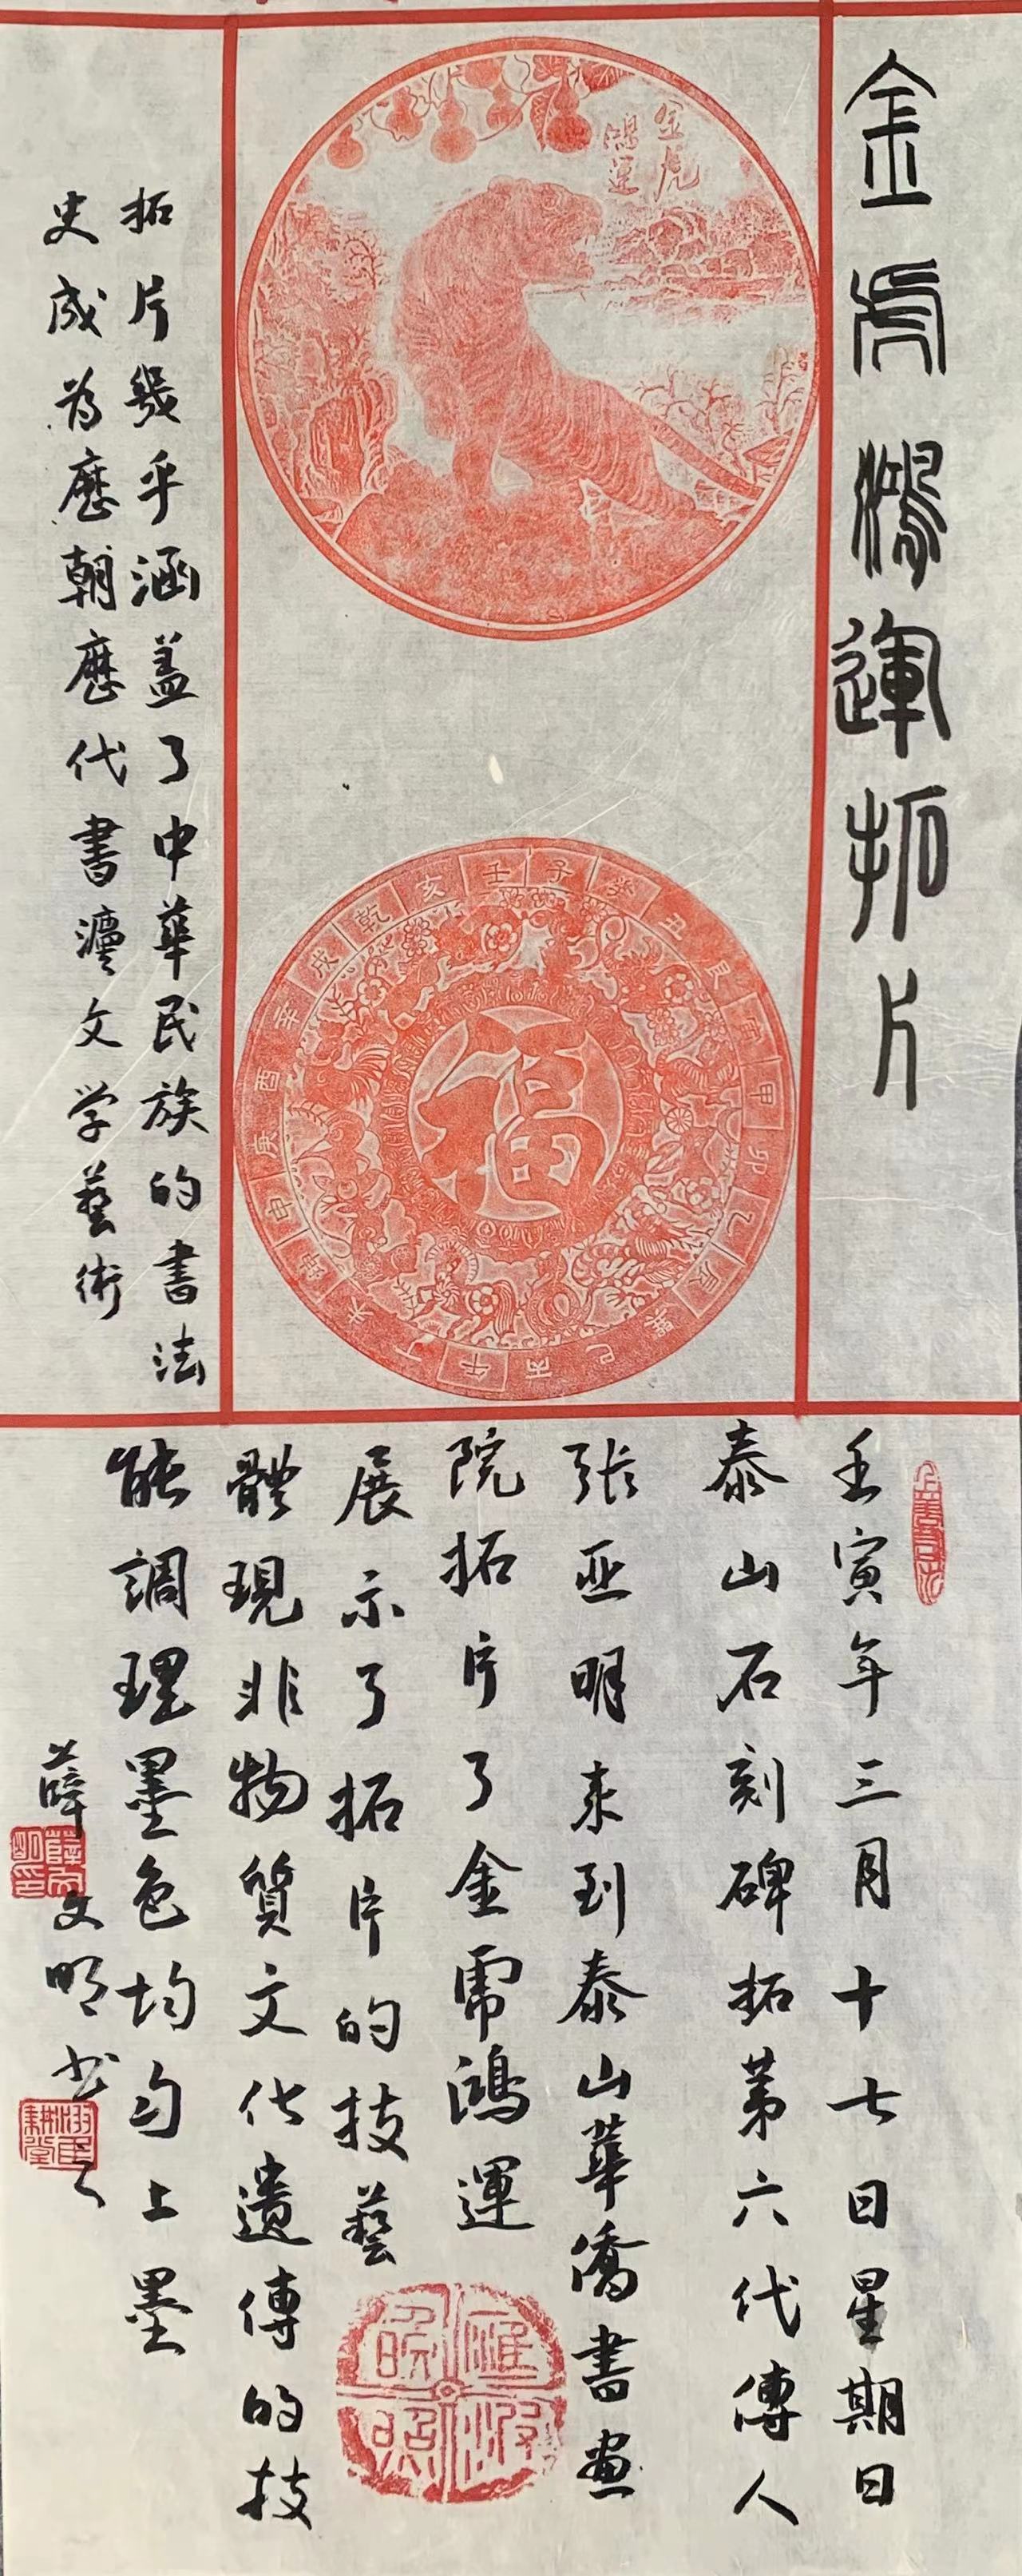 金虎鴻運拓片
金虎
鴻運
福
壬子癸丑艮寅甲卯乙辰巽巳丙午丁未坤申庚酉辛戌乾亥
拓片幾乎涵蓋了中華民族的書法
史成為歷朝歷代書瀆文学藝術
壬寅年三月十七日星期日
泰山石刻碑拓第六代傳人
張亚明来到泰山華僑書画
院拓片了金虎鴻運
展示了拓片的技藝
體現非物質文化遺傳的技
能調理墨色均勻上墨
薛文明书之